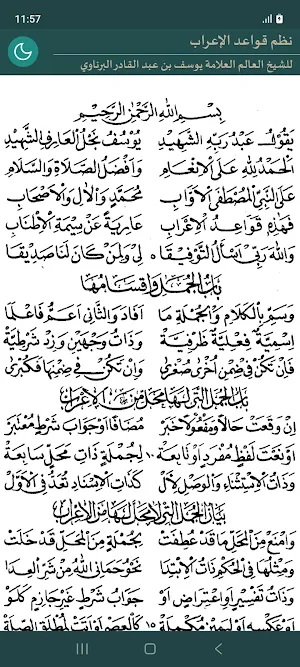 11:57
نظم قواعد الإعراب
للشيخ العالم العلامة يوسف بن عبد القادر البرناوي
بِسْمِ اللهِ الرَّحْمٰنِ الرَّحِيْمِ
يَقُوْلُ عَبْدُ رَبِّهِ الشَّهِيْدِ يُوْسُفُ نَجْلُ الْعَارِفِ الشَّهِيْدِ
اَلْحَمْدُ لِلّٰهِ عَلَى الْاِنْعَامِ وَاَفْضَلُ الصَّلَاةِ وَالسَّلَامِ
عَلَى النَّبِيِّ الْمُصْطَفَى الْاَوَّابِ مُحَمَّدٍ وَالْاٰلِ وَالْاَصْحَابِ
فَهٰذِهِ قَوَاعِدُ الْاِعْرَابِ عَارِيَةٌ عَنْ سِمَةِ الْاِطْنَابِ
وَاللهَ رَبِّيْ اَسْأَلُ التَّوْفِيْقَا ٥ لِيْ وَلِمَنْ كَانَ لَنَا صَدِيْقَا
بَابُ الْجُمَلِ وَاَقْسَامُهَا
وَسَمِّ بِالْكَلَامِ وَالْجُمْلَةِ مَا اَفَادَ وَالثَّانِيْ اَعَمُّ فَاعْلَمَا
اِسْمِيَّةٌ فِعْلِيَّةٌ ظَرْفِيَّةْ وَذَاتُ وَجْهَيْنِ وَزِدْ شَرْطِيَّةْ
فَاِنْ تَكُنْ فِيْ ضِمْنِ اُخْرٰى صُغْرٰى وَاِنْ تَكُنْ فِيْ ضِمْنِهَا فَكُبْرٰى
بَابُ الْجُمَلِ الَّتِيْ لَهَا مَحَلٌّ مِنَ الْاِعْرَابِ
اِنْ وَقَعَتْ حَالًا وَمَفْعُوْلًا خَبَرْ مُضَافًا اَوْ جَوَابَ شَرْطٍ مُعْتَبَرْ
اَوْ نَعْتَ لَفْظٍ مُفْرَدٍ اَوْ تَابِعَةْ ١٠ لِجُمْلَةٍ ذَاتِ مَحَلٍّ سَابِعَةْ
وَذَاتُ الْاِسْتِثْنَاءِ وَالْوَصْلِ لِاَلْ كَذَاتِ الْاِسْنَادِ تُعَدُّ فِي الْاُوَلْ
بَيَانُ الْجُمَلِ الَّتِيْ لَا مَحَلَّ لَهَا مِنَ الْاِعْرَابِ
وَامْنَعْ مِنَ الْمَحَلِّ مَا قَدْ عُطِفَتْ بِجُمْلَةٍ مِنَ الْمَحَلِّ قَدْ خَلَتْ
وَمِثْلُهَا فِي الْحُكْمِ ذَاتُ الْاِبْتِدَا نَحْوُ حَمَانِيَ اللهُ مِنْ شَرِّ الْعِدَا
وَذَاتُ تَفْسِيْرٍ اَوِ اعْتِرَاضٍ اَوْ جَوَابُ شَرْطٍ غَيْرِ جَازِمٍ كَلَوْ
١٥